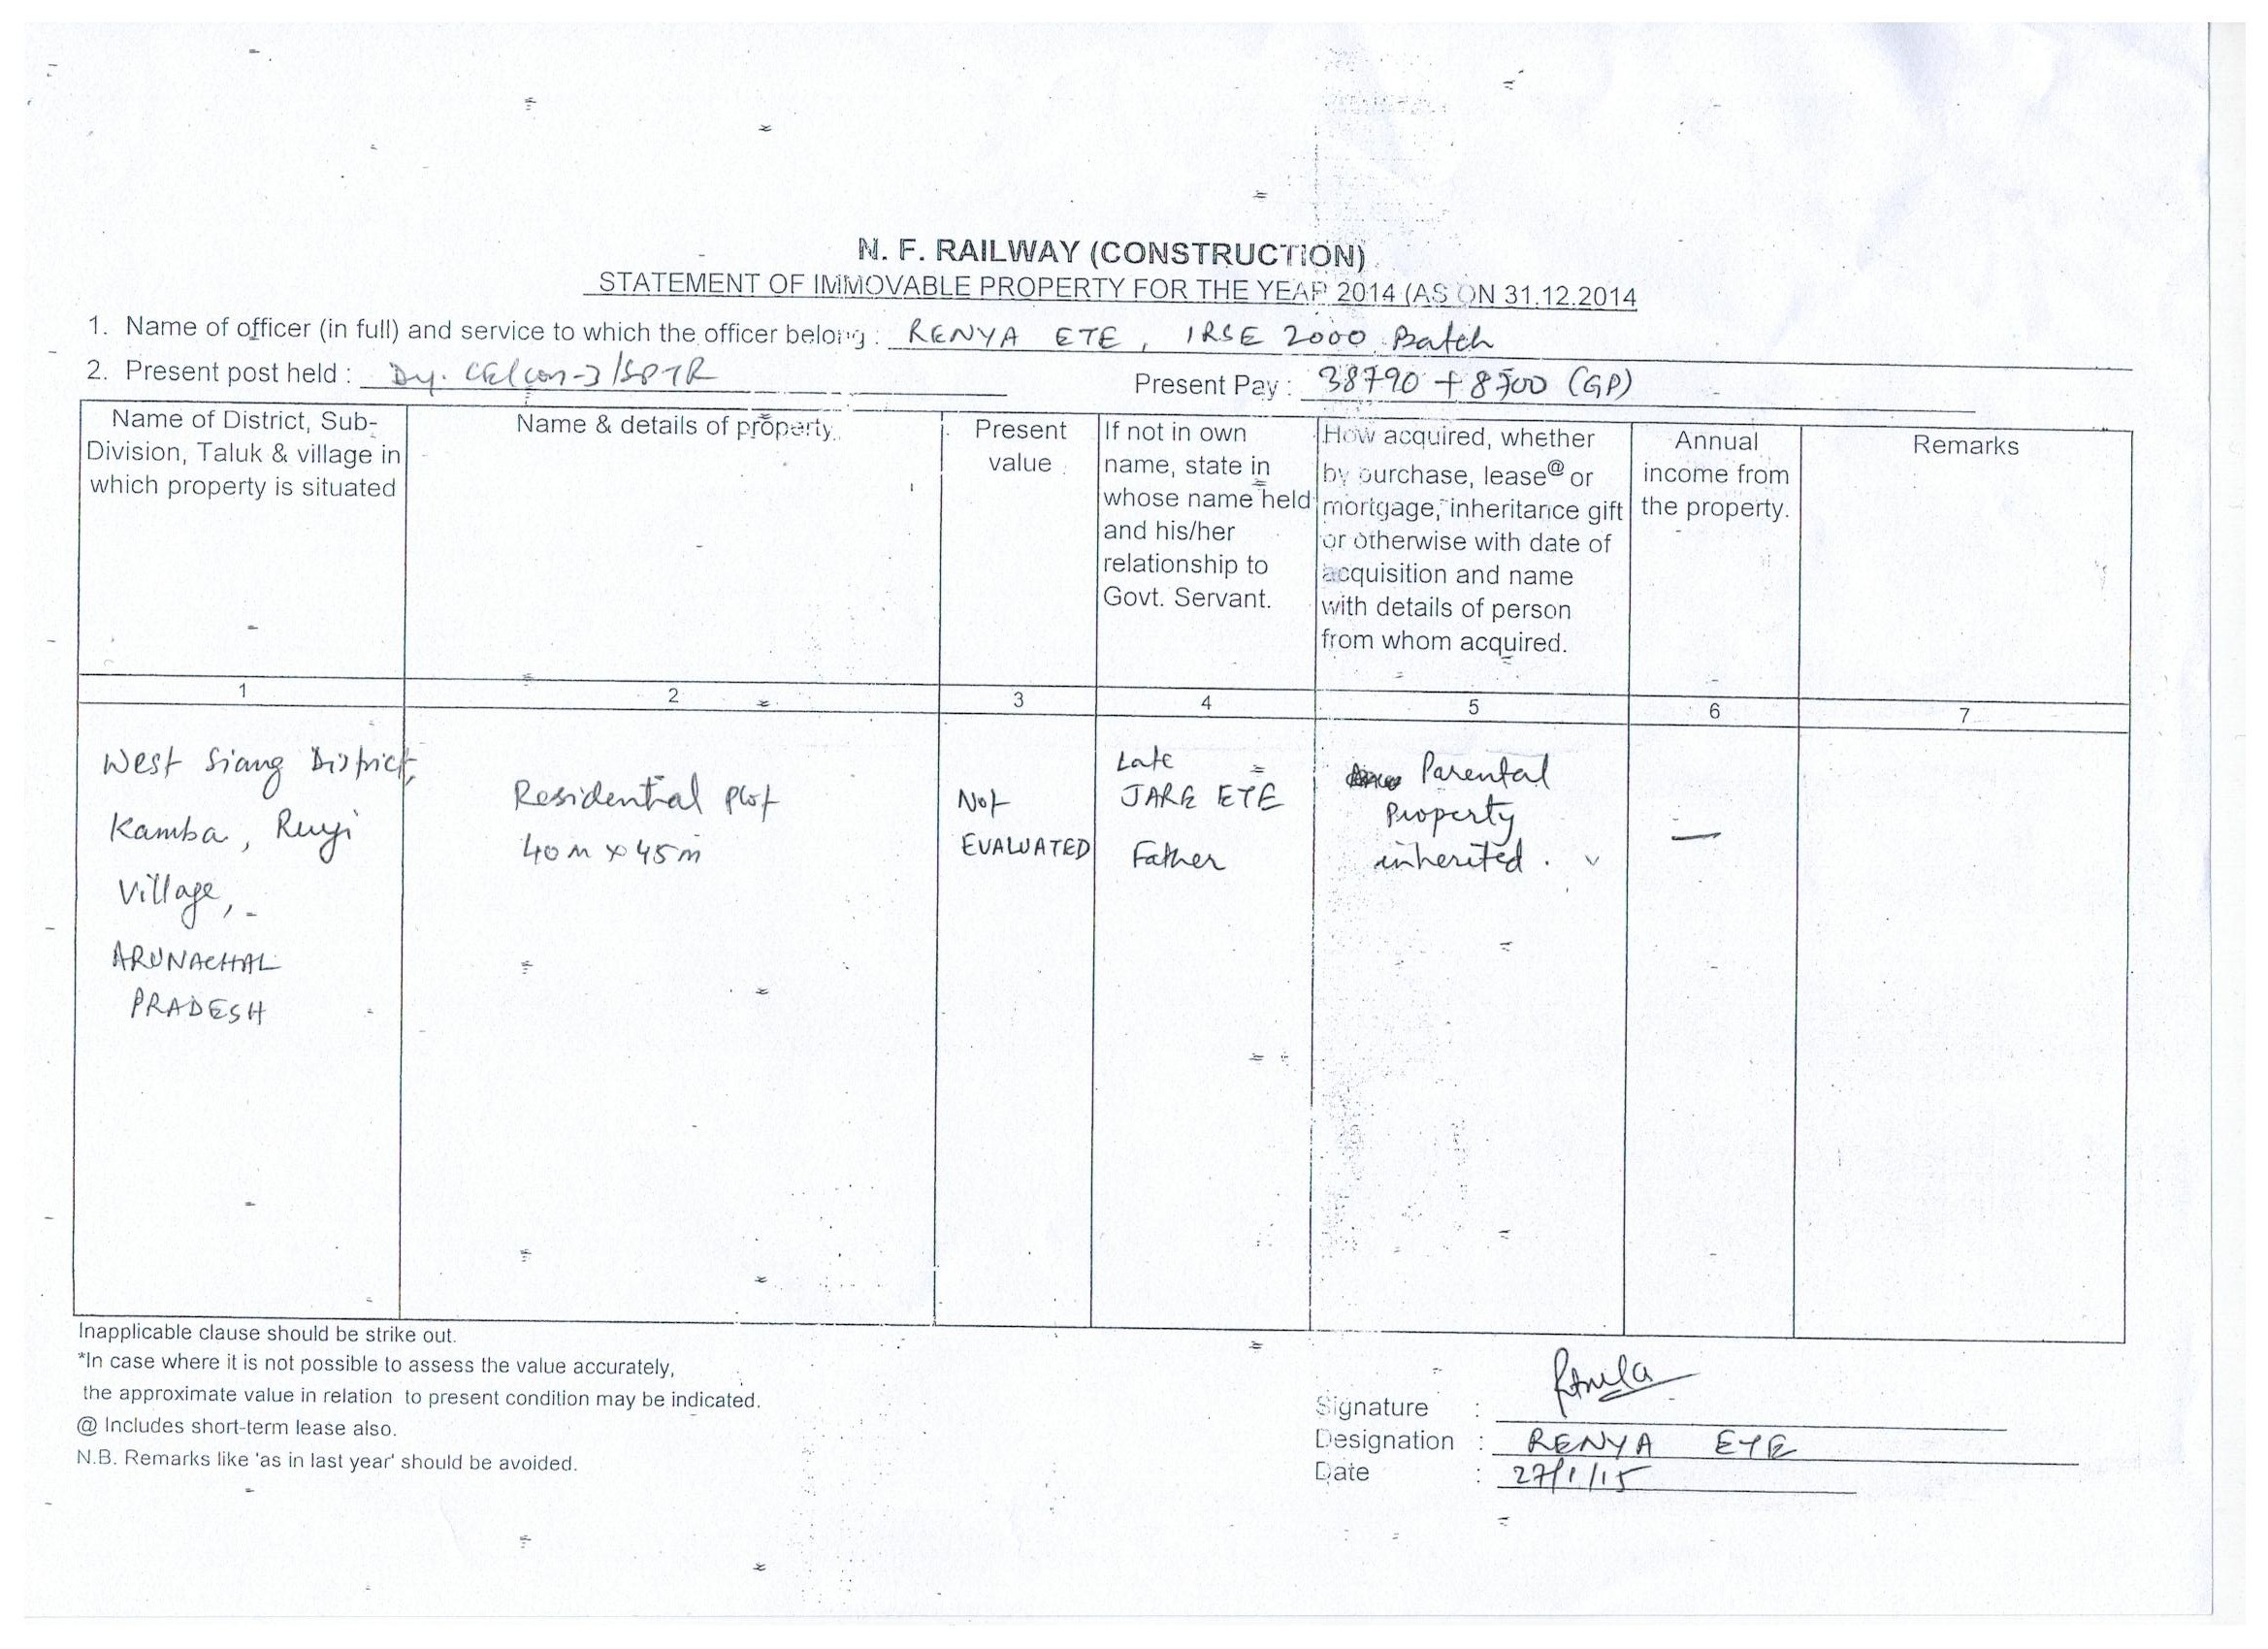 N. F. RAILWAY (CONSTRUCTION)
STATEMENT OF IMMOVABLE PROPERTY FOR THE YEAR 2014 (AS ON 31.12.2014
1. Name of officer (in full) and service to which the officer belong : RENYA ETE, IRSE 2000 Batch
2. Present post held : Dy. CE/con-3/SPTR Present Pay : 38790 + 8700 (GP)
Name of District, Sub-
Division, Taluk & village in
which property is situated
Name & details of property.
Present
value
If not in own
name, state in
whose name held
and his/her
relationship to
Govt. Servant.
How acquired, whether
by purchase, lease@ or
mortgage, inheritance gift
or otherwise with date of
acquisition and name
with details of person
from whom acquired.
Annual
income from
the property.
Remarks
1 2 3 4 5 6 7
West Siang District,
Kamba, Ruyi
Village,
ARUNACHAL
PRADESH
Residential Plot
40m x 45m
Not
EVALUATED
Late
JARE ETE
Father
Parental
Property
inherited.
—
Inapplicable clause should be strike out.
*In case where it is not possible to assess the value accurately,
the approximate value in relation to present condition may be indicated.
@ Includes short-term lease also.
N.B. Remarks like 'as in last year' should be avoided.
Signature :
Designation : RENYA ETE
Date : 27/1/15